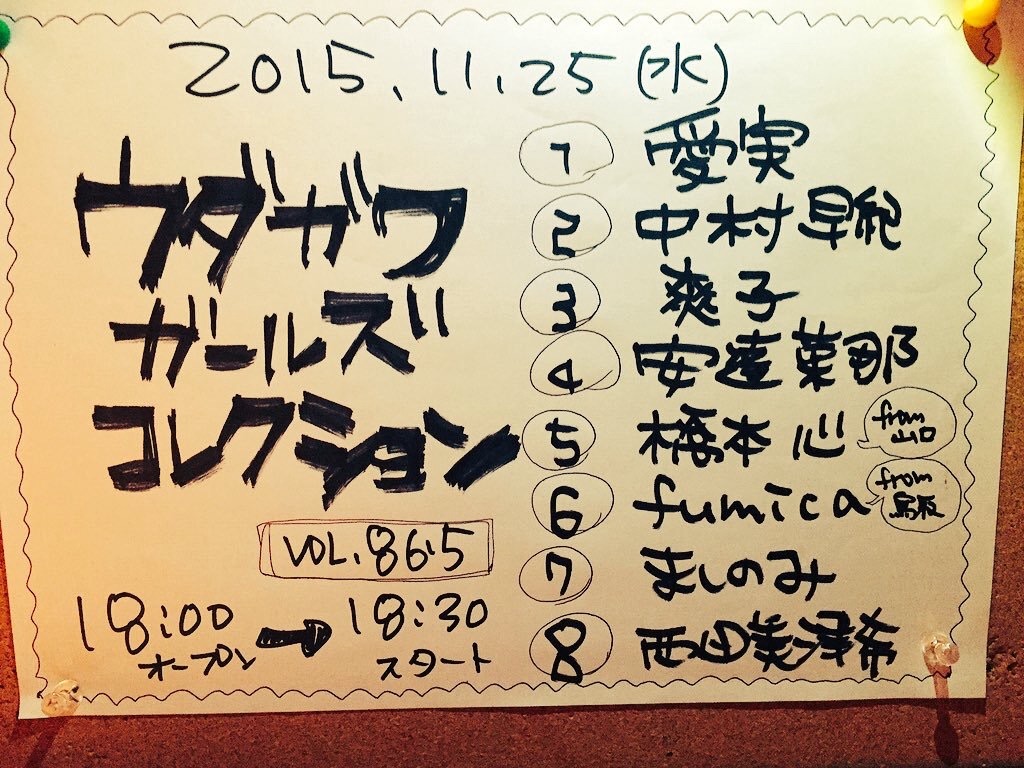 2015.11.25(水)
ウダガワ
ガールズ
コレクション
VOL.86.5
18:00 → 18:30
オープン スタート
1 愛実
2 中村早紀
3 爽子
4 安達菜那
5 橋本心 from 山口
6 fumica from 鳥取
7 ましのみ
8 西田美津希